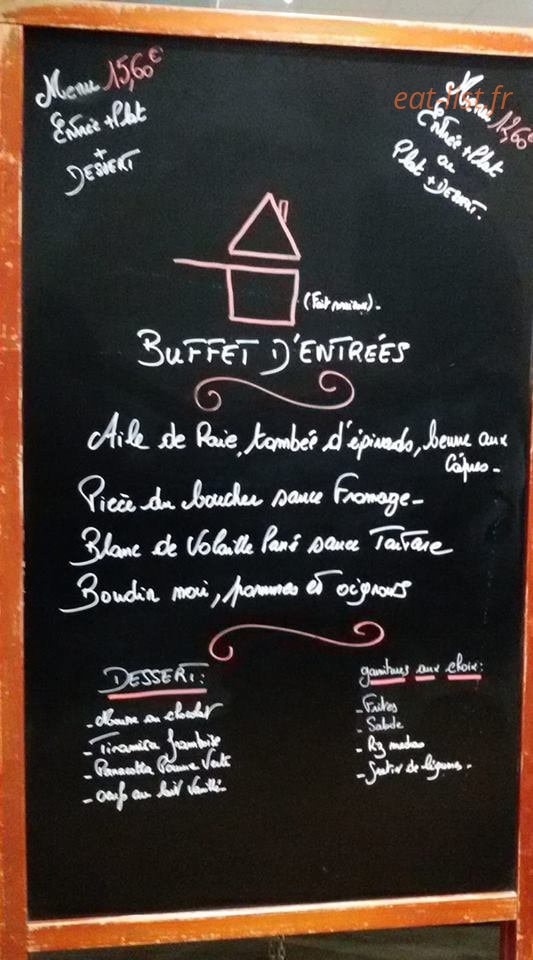 Menu 15,60€
Entrée + Plat
+
DESSERT
eat-list.fr
Menu 12,60€
Entrée + Plat
ou
Plat + DESSERT.
(Fait maison).
BUFFET D'ENTRÉES
Aile de Raie, tombée d'épinards, beurre aux
Câpres -
Pièce du boucher sauce Fromage -
Blanc de Volaille Pané sauce Tartare
Boudin noir, pommes et oignons
DESSERT:
- Mousse au chocolat
- Tiramisu framboise
- Panacotta Pomme Verte
- oeuf au lait Vanille
garnitures aux choix:
- Frites
- Salade
- Riz
- de légumes -